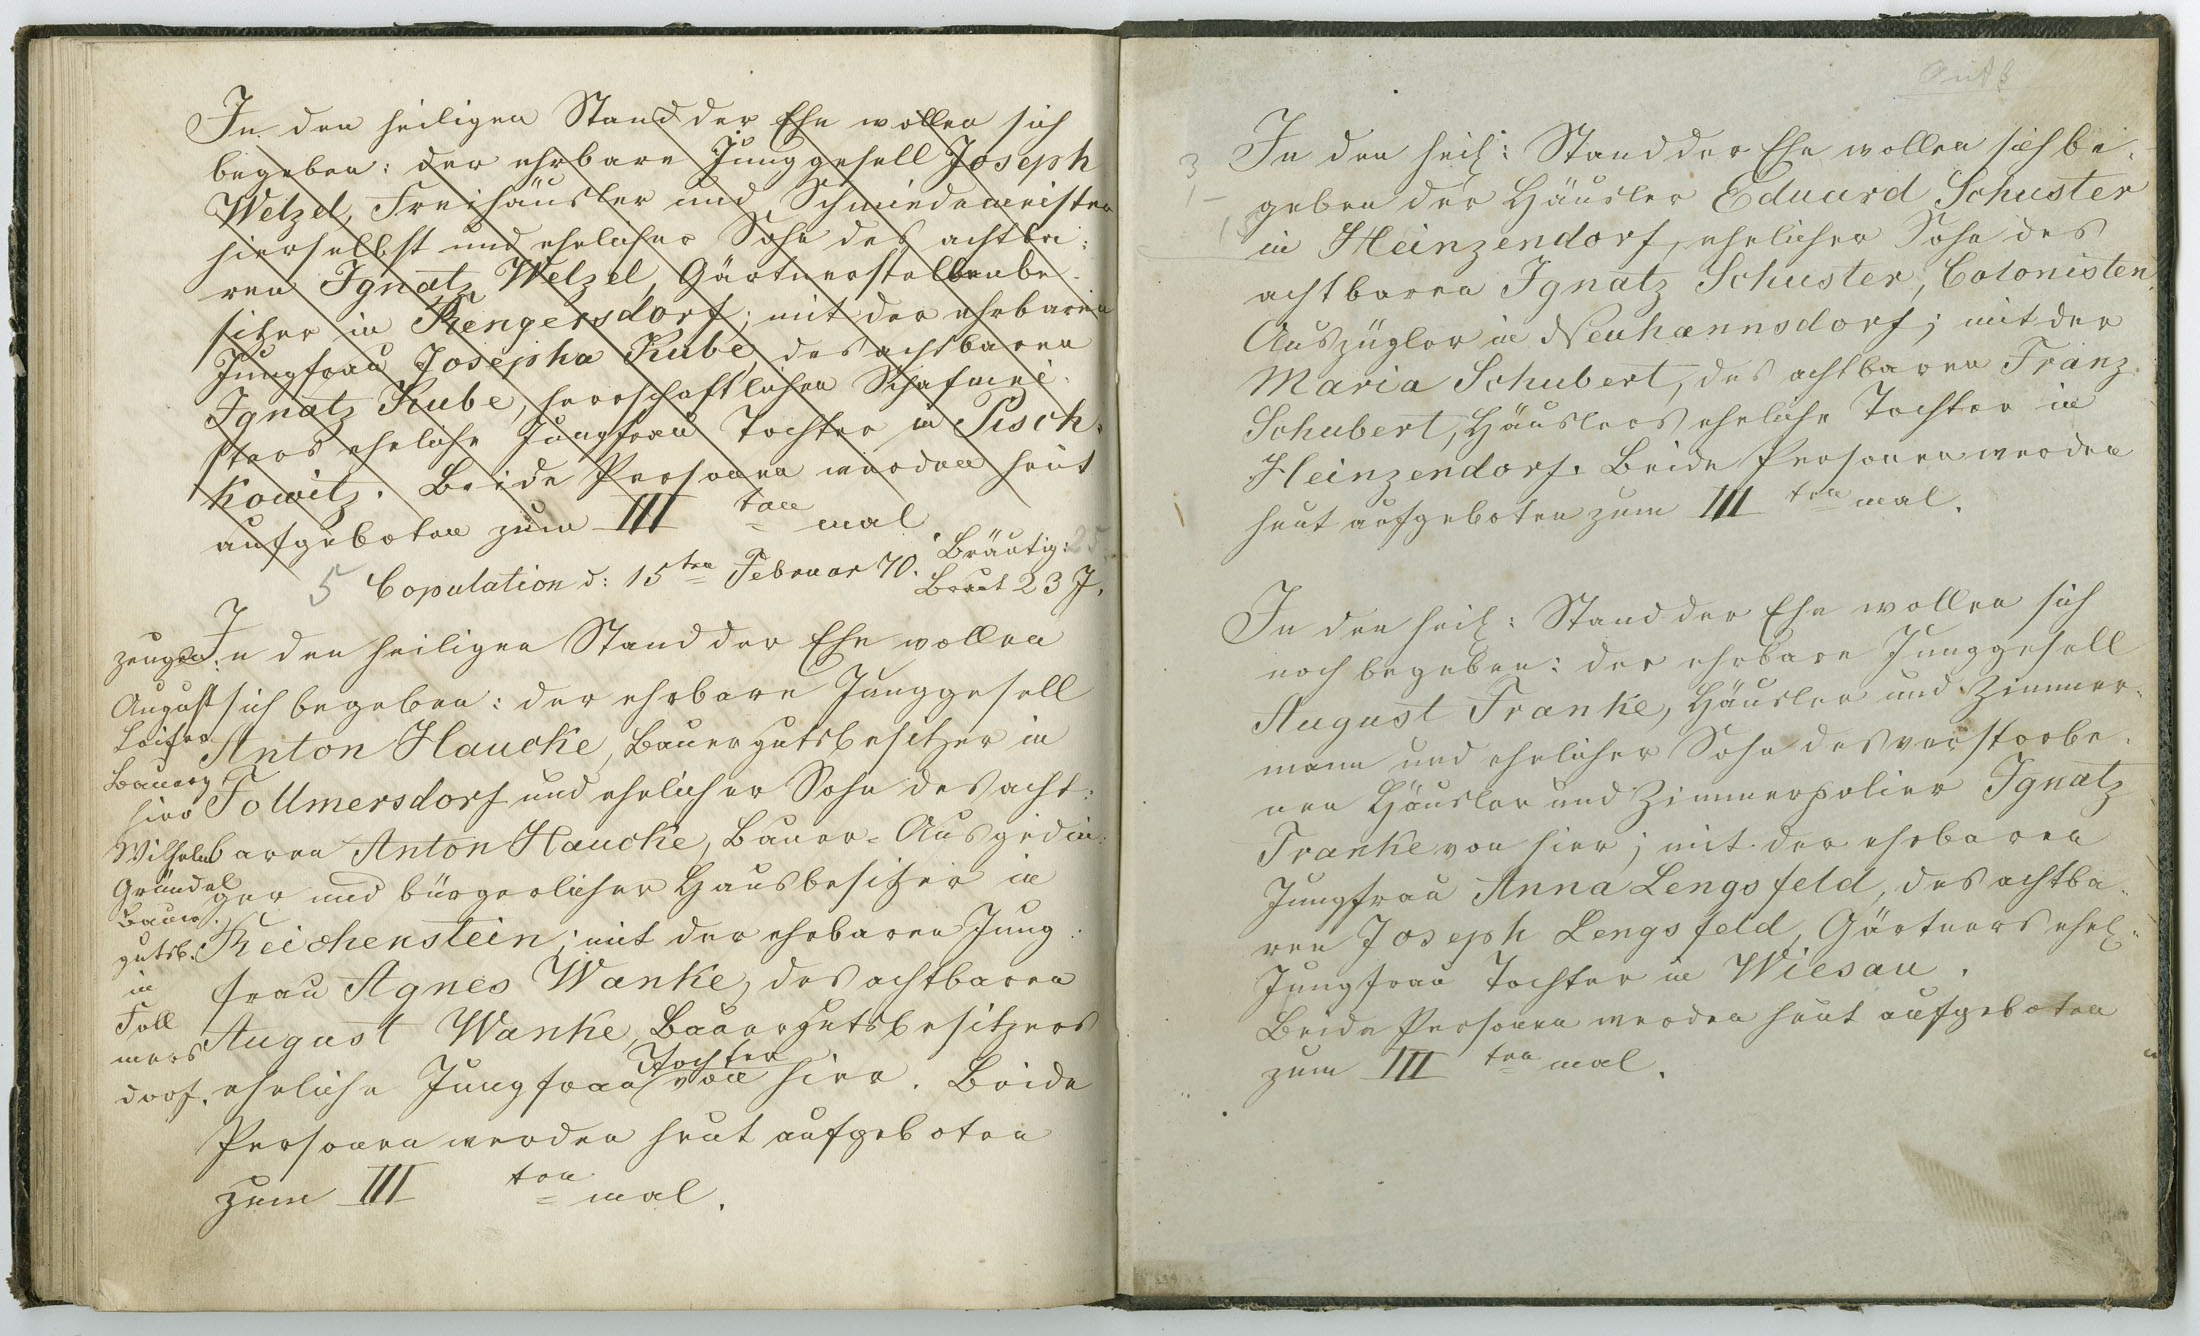 In den heiligen Stand der Ehe wollen sich
begeben: der ehrbare Junggesell Joseph
Welzel, Freihäusler und Schmiedemeister
hierselbst und ehelicher Sohn des achtba:
ren Ignatz Welzel, Gärtnerstellenbe-
sitzer in Rengersdorf; mit der ehrbaren
Jungfrau Josepha Kube, des achtbaren
Ignatz Kube, herrschaftlichen Schafmei-
sters eheliche Jungfrau Tochter in Pisch-
kowitz. Beide Personen werden heut
aufgeboten zum III ten mal
5 Copulation d: 15ten Februar 70. Bräutig: 25
Braut 23 J.
In den heiligen Stand der Ehe wollen
sich begeben: der ehrbare Junggesell
Anton Haucke, Bauergutsbesitzer in
Follmersdorf und ehelicher Sohn des acht:
baren Anton Haucke, Bauer-Ausgedin:
ger und bürgerlicher Hausbesitzer in
Reichenstein; mit der ehrbaren Jung:
frau Agnes Wanke, des achtbaren
August Wanke, Bauergutsbesitzers
eheliche Jungfrau Tochter von hier. Beide
Personen werden heut aufgeboten
zum III ten mal.
Zeugen:
August
Bauerg
hier
Wilhelm
Gründel
Bauer-
gutsb.
in
Foll
mers
dorf.
In den heil: Stand der Ehe wollen sich be-
geben der Häusler Eduard Schuster
in Heinzendorf, ehelicher Sohn des
achtbaren Ignatz Schuster, Colonisten
Auszügler in Neuhannsdorf; mit der
Maria Schubert, des achtbaren Franz
Schubert, Häuslers eheliche Tochter in
Heinzendorf. Beide Personen werden
heut aufgeboten zum III ten mal.
In den heil: Stand der Ehe wollen sich
noch begeben: der ehrbare Junggesell
August Franke, Häusler und Zimmer-
mann und ehelicher Sohn des verstorbe-
nen Häusler und Zimmerpolier Ignatz
Franke von hier; mit der ehrbaren
Jungfrau Anna Lengsfeld, des achtba-
ren Joseph Lengsfeld, Gärtners ehel:
Jungfrau Tochter in Wiesau.
Beide Personen werden heut aufgeboten
zum III ten mal.